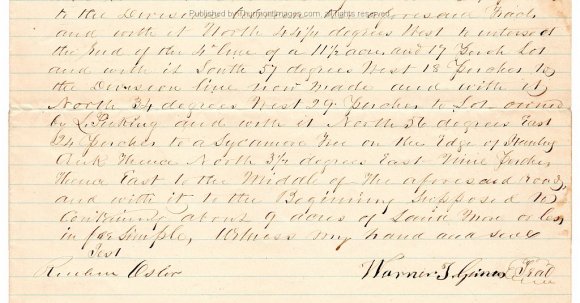 to the Division aforesaid Tract
Published by thurmontimages.com. All rights reserved.
and with it North 44½ degrees West to intersect
the End of the 4th line of a 11½ acre and 17 Perch Lot
and with it South 57 degrees West 18 Perches to
the Division line now made and with it
North 34 degrees West 29 Perches to Lot owned
by L. Picking and with it North 56 degrees East
24 Perches to a Sycamore Tree on the Edge of
Thence North 3½ degrees East Nine Perches
Thence East to the Middle of The aforesaid Road,
and with it to the Beginning Supposed to
Containing about 9 acres of Land More or less
in fee Simple, Witness my hand and seal
Test
Osler Warner T. Grimes Seal